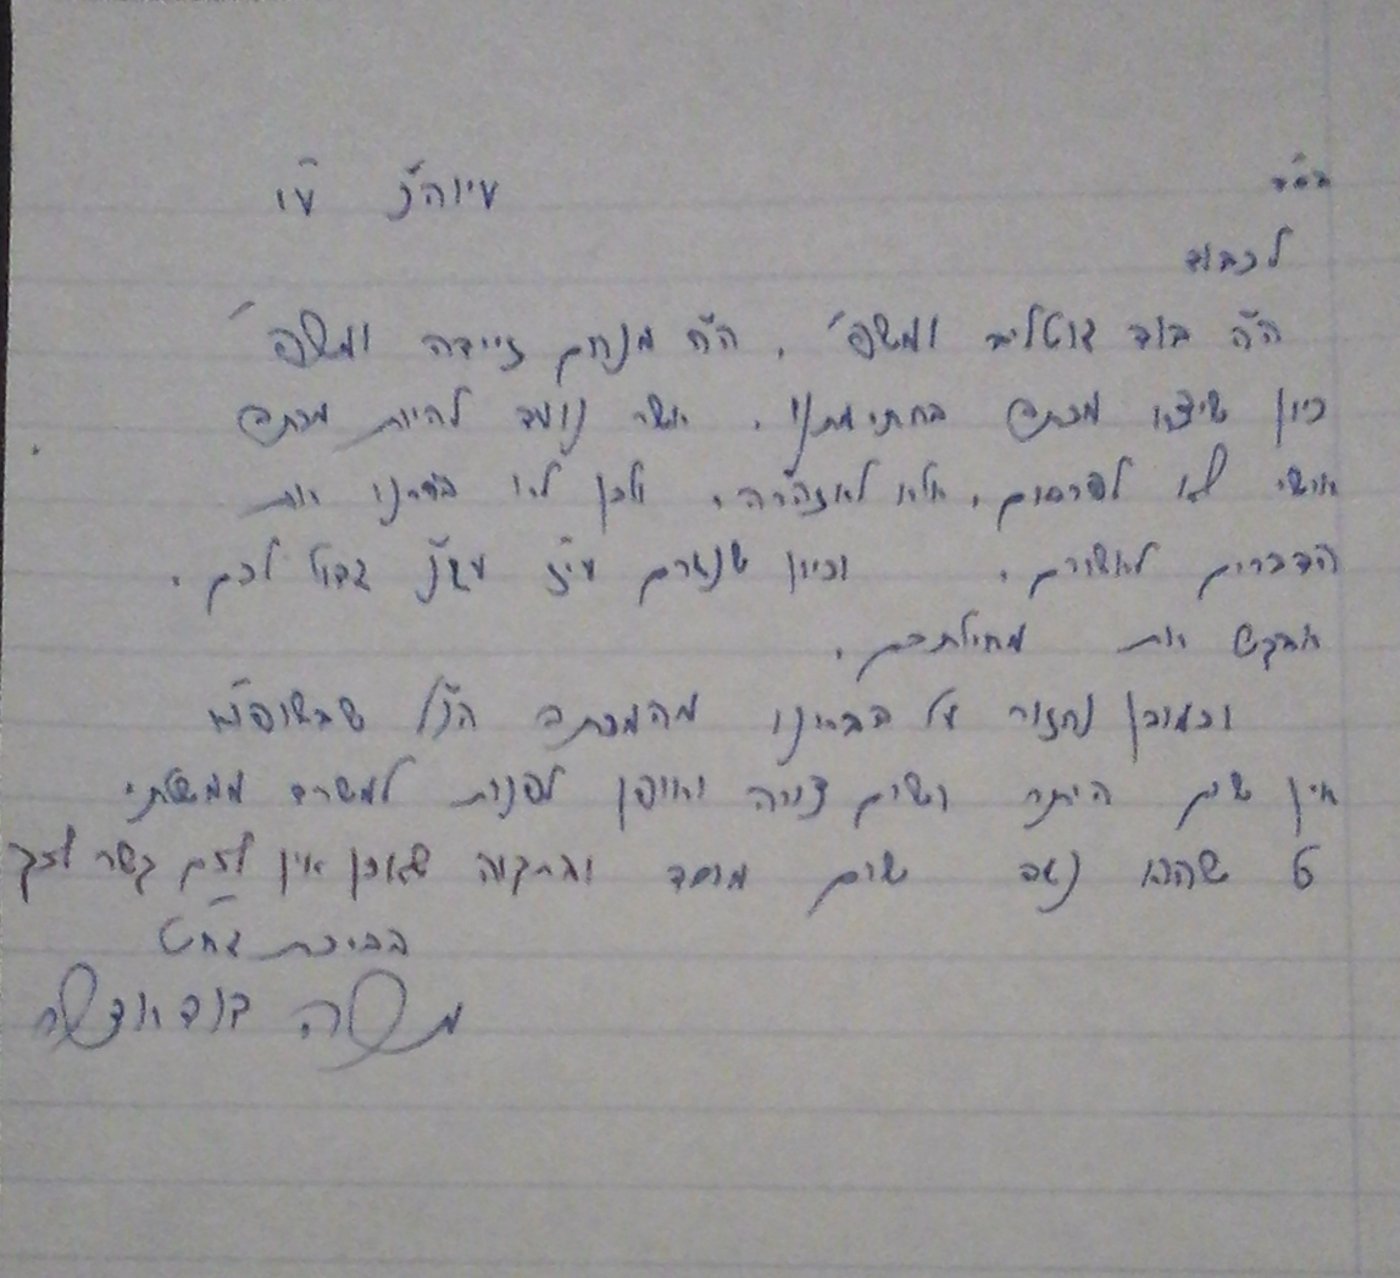 בס"ד עיוהכ"פ ע"ו
לכבוד
הר"ה דוד גוטליב ומשפ', הר"ח מנחם זיידה ומשפ'
כיון שיצא מכתב בחתימתנו, אשר נועד להיות מכתב
אישי לא לפרסום, אלא לאזהרה, ולכן לא בררנו את
הדברים לאשורם, וכיון שנגרם עי"ז עגמ"נ גדול לכם,
אבקש את מחילתכם,
וכמובן נחזור על דברינו מהמכתב הנ"ל שבשופו"א
אין שום היתר ושום צורה ואופן לפנות למשרד ממשלתי
שום מוסד ובתקוה שאכן אין לכם קשר לכך
בברכת גמח"ט
משה